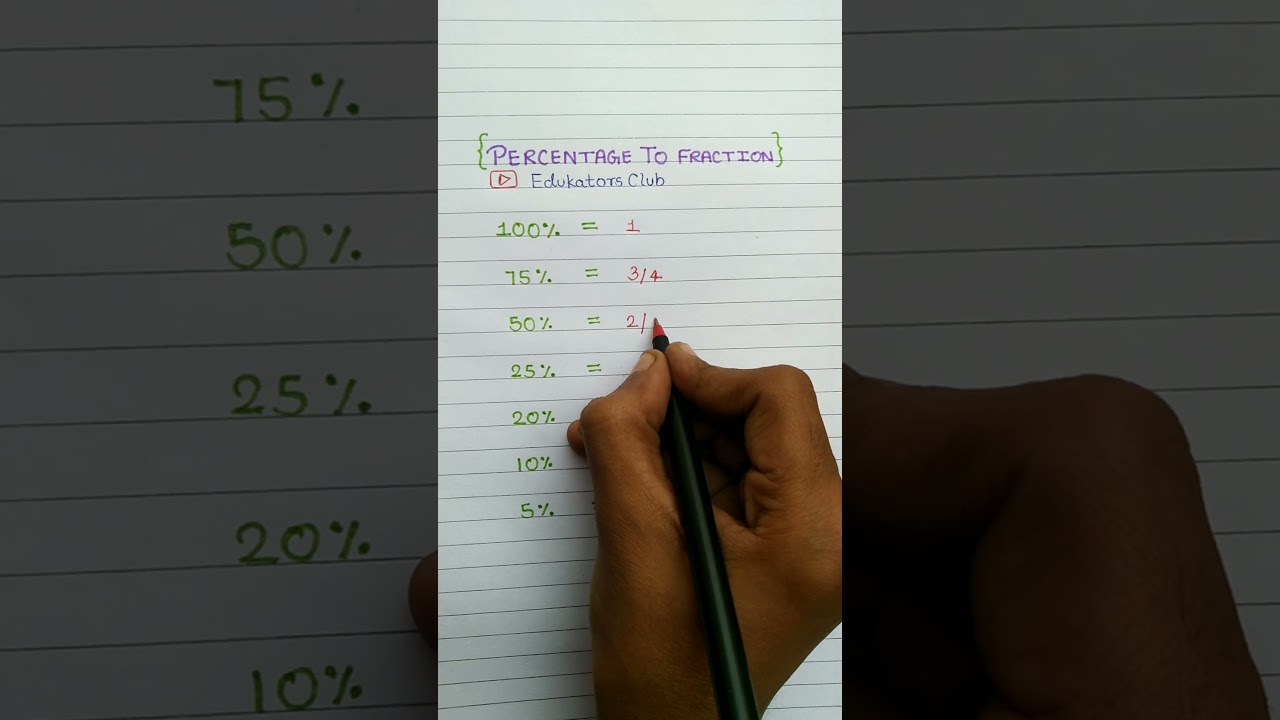 {PERCENTAGE TO FRACTION}
Edukators Club
100% = 1
75% = 3/4
50% = 2/
25% =
20%
10%
5%
75%
50%
25%
20%
10%